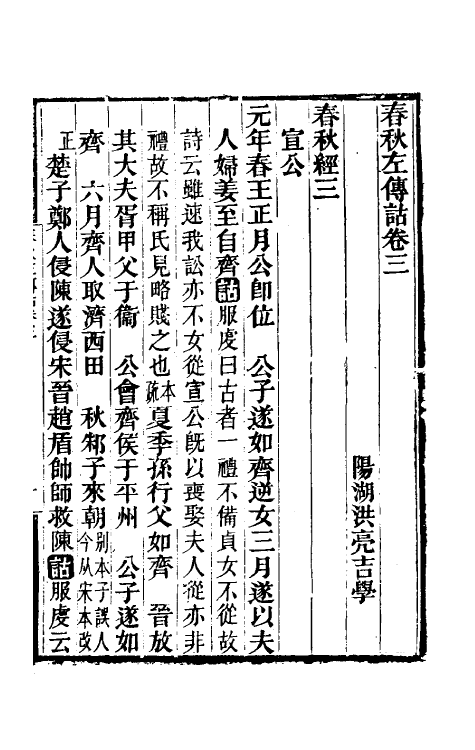 春秋左傳詁卷三
陽湖洪亮吉學
春秋經三
宣公
元年春王正月公卽位　公子遂如齊逆女三月遂以夫
人婦姜至自齊詁服虔曰古者一禮不備貞女不從故
詩云雖速我訟亦不女從宣公旣以喪娶夫人從亦非
禮故不稱氏見略賤之也本疏夏季孫行父如齊　晉放
其大夫胥甲父于衞　公會齊侯于平州　公子遂如
齊　六月齊人取濟西田　秋邾子來朝別本子誤人今从宋本改
正楚子鄭人侵陳遂侵宋晉趙盾帥師救陳詁服虔云